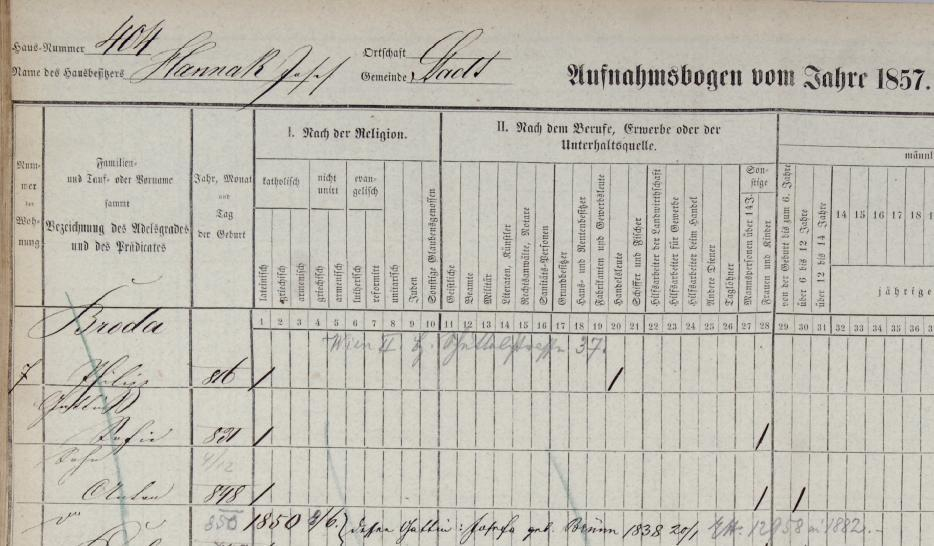 Haus-Nummer 404
Name des Hausbesitzers Hannak Josef
Ortschaft
Gemeinde Stadt
Aufnahmsbogen vom Jahre 1857.
Num-
mer
der
Woh-
nung
Familien-
und Tauf- oder Vorname
sammt
Bezeichnung des Adelsgrades
und des Prädicates
Jahr, Monat
und
Tag
der Geburt
I. Nach der Religion.
katholisch
nicht
unirt
evan-
gelisch
lateinisch
griechisch
armenisch
griechisch
armenisch
lutherisch
reformirt
unitarisch
Juden
Sonstige Glaubensgenossen
II. Nach dem Berufe, Erwerbe oder der
Unterhaltsquelle.
Geistliche
Beamte
Militär
Literaten, Künstler
Rechtsanwälte, Notare
Sanitäts-Personen
Grundbesitzer
Haus- und Rentenbesitzer
Fabrikanten und Gewerbsleute
Handelsleute
Schiffer und Fischer
Hilfsarbeiter der Landwirthschaft
Hilfsarbeiter für Gewerbe
Hilfsarbeiter beim Handel
Andere Diener
Taglöhner
Son-
stige
Mannspersonen über 14 J.
Frauen und Kinder
männl
von der Geburt bis zum 6. Jahre
über 6 bis 12 Jahre
über 12 bis 14 Jahre
14 15 16 17 18
jährige
1 2 3 4 5 6 7 8 9 10 11 12 13 14 15 16 17 18 19 20 21 22 23 24 25 26 27 28 29 30 31 32 33 34 35 36
Broda
Wien II 37.
7 Philipp 816
Gattin
Sofie 821
Sohn 4/12
Anton 848
850 1850 2/6. dessen Gattin: Josefa geb. Brünn 1838 20/1 12958 1882.